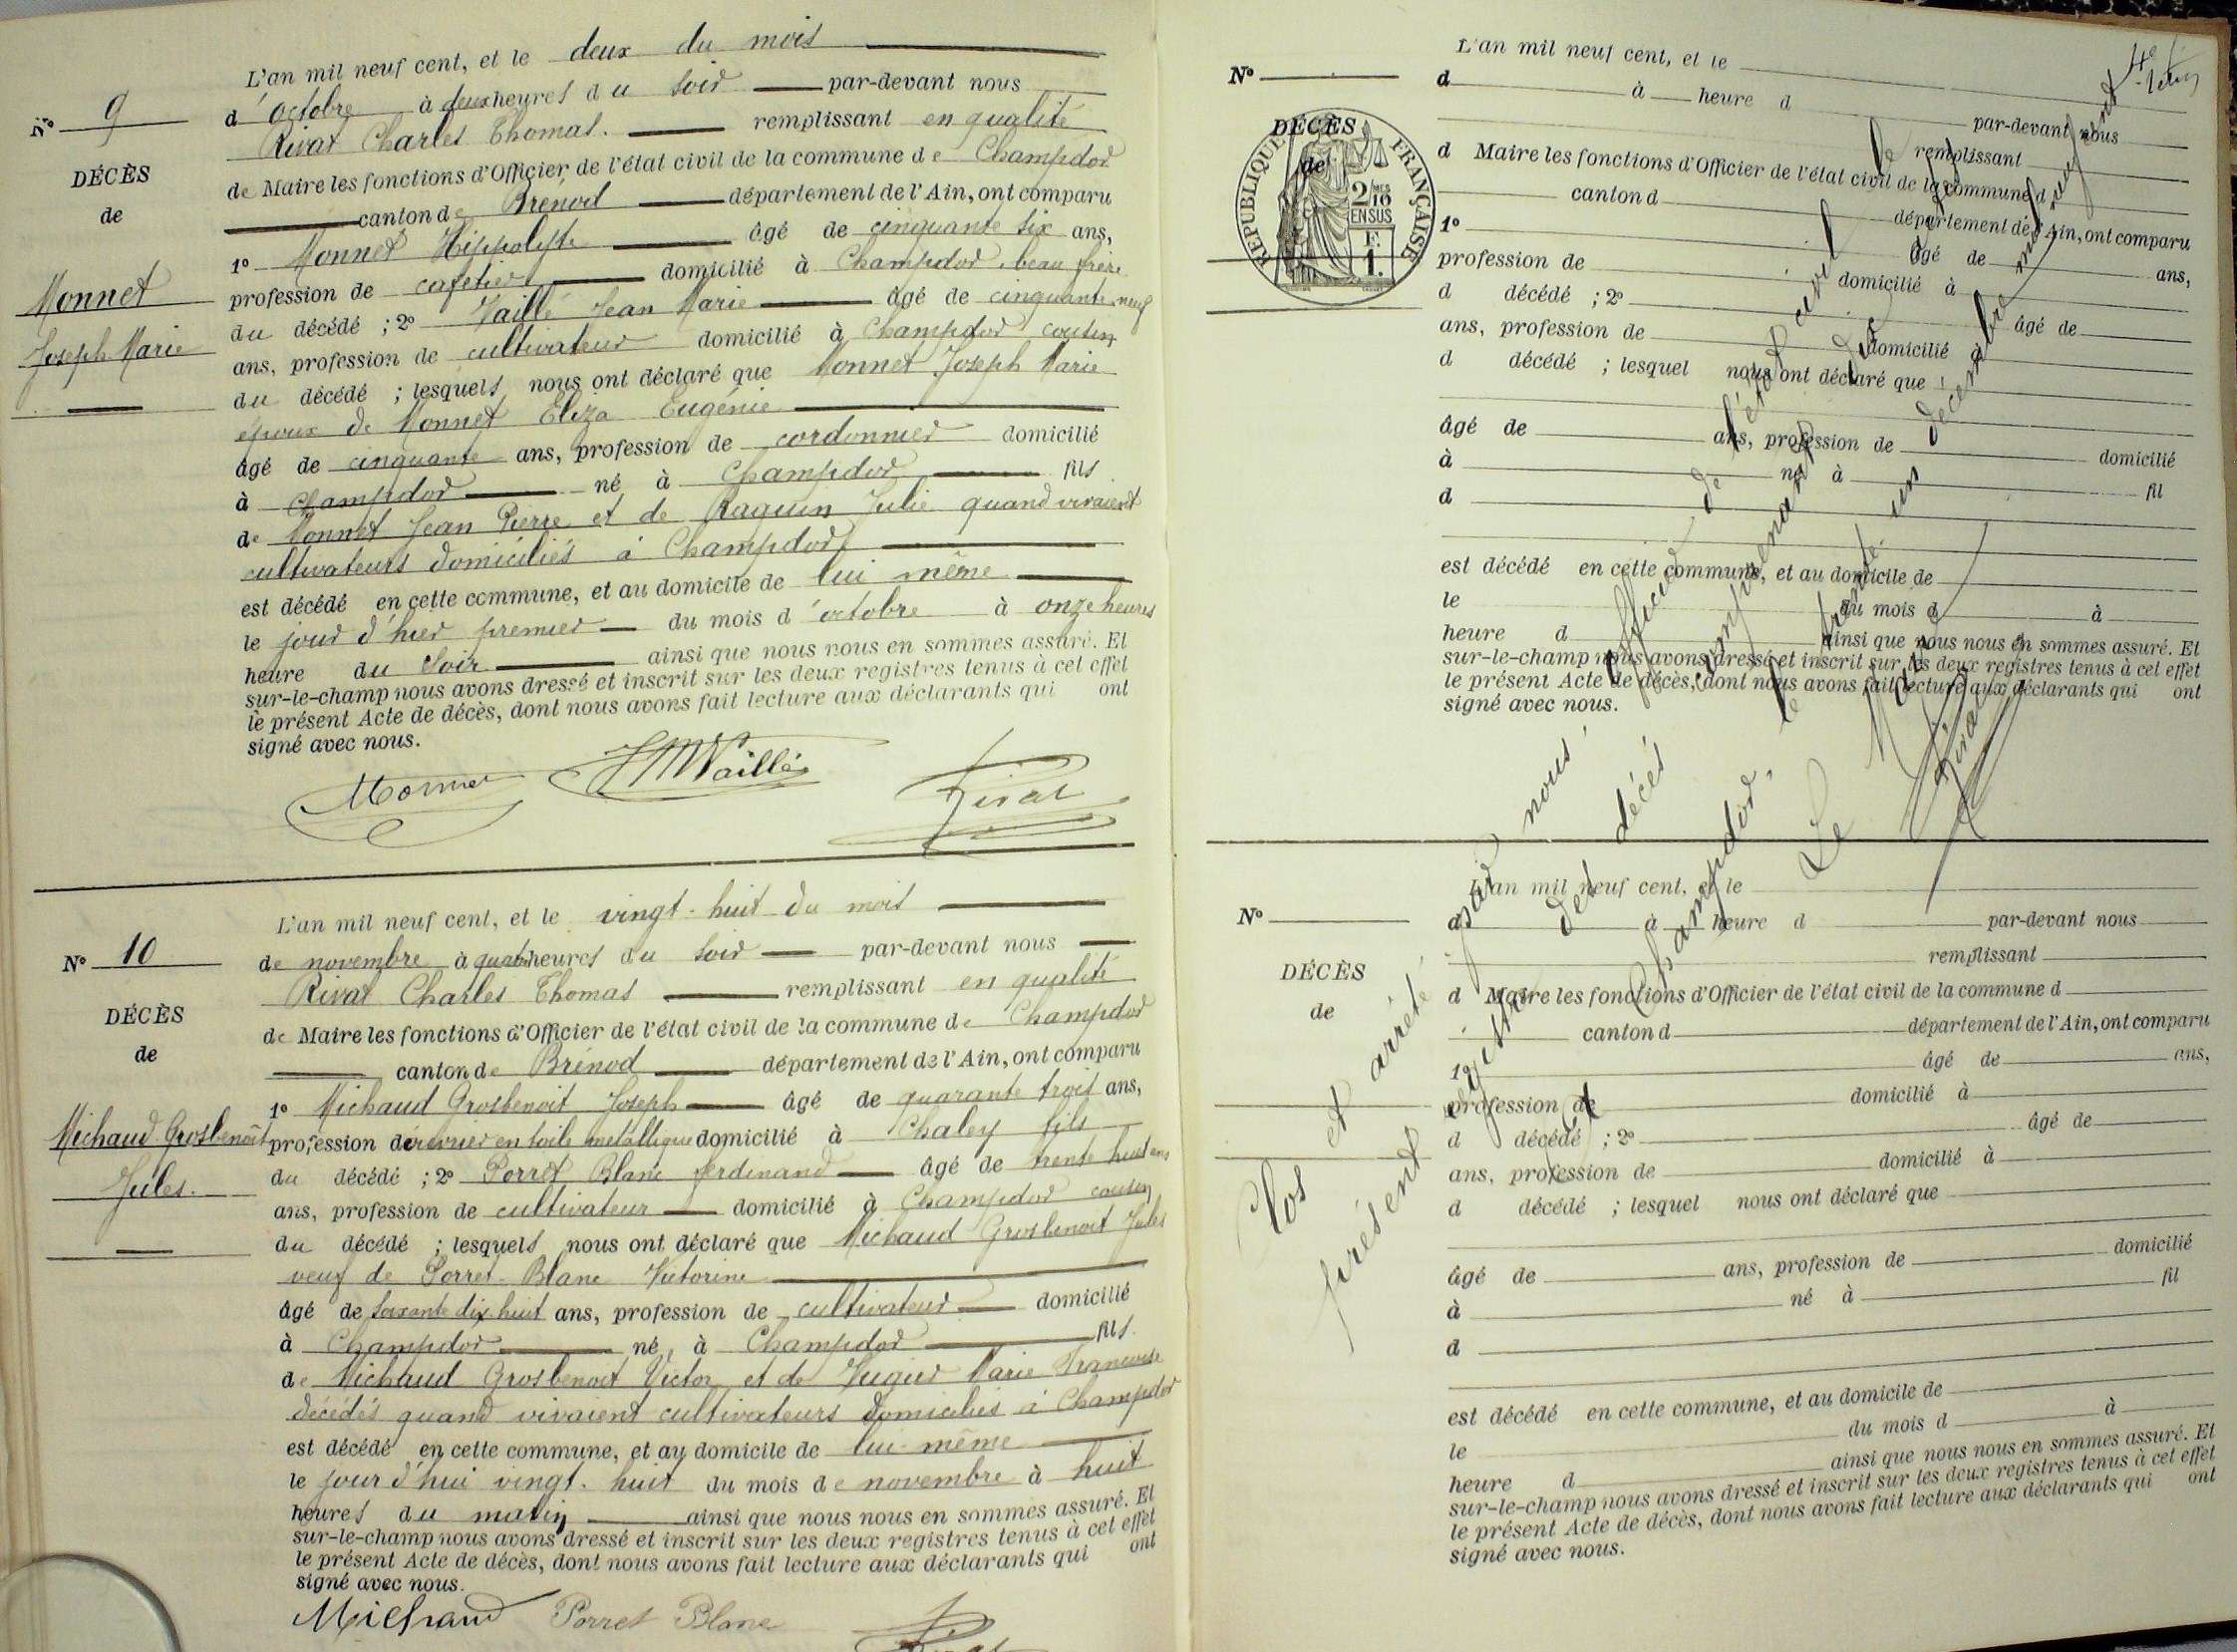 L'an mil neuf cent, et le deux du mois
N° 9
d'octobre à deux heures du soir par-devant nous
Rivat Charles Thomas. remplissant en qualité
DÉCÈS
de Maire les fonctions d'Officier de l'état civil de la commune de Champdor
de
canton de Brénod département de l'Ain, ont comparu
1° Monnet Hippolyte âgé de cinquante six ans,
Monnet
profession de cafetier domicilié à Champdor, beau frère
du décédé ; 2° Vaillé Jean Marie âgé de cinquante neuf
Joseph Marie
ans, profession de cultivateur domicilié à Champdor cousin
du décédé ; lesquels nous ont déclaré que Monnet Joseph Marie
époux de Monnet Eliza Eugénie
âgé de cinquante ans, profession de cordonnier domicilié
à Champdor né à Champdor fils
de Monnet Jean Pierre et de Raguin Julie quand vivaient
cultivateurs domiciliés à Champdor
est décédé en cette commune, et au domicile de lui même
le jour d'hier premier du mois d'octobre à onze heures
heure du soir ainsi que nous nous en sommes assuré. Et
sur-le-champ nous avons dressé et inscrit sur les deux registres tenus à cet effet
le présent Acte de décès, dont nous avons fait lecture aux déclarants qui ont
signé avec nous.
Monnet JM Vaillé Rivat
L'an mil neuf cent, et le vingt-huit du mois
N° 10
de novembre à quatre heures du soir par-devant nous
Rivat Charles Thomas remplissant en qualité
DÉCÈS
de Maire les fonctions d'Officier de l'état civil de la commune de Champdor
de
canton de Brénod département de l'Ain, ont comparu
1° Michaud Grosbenoit Joseph âgé de quarante trois ans,
Michaud Grosbenoit
profession d'ouvrier en toile métallique domicilié à Chaley fils
du décédé ; 2° Porret Blanc ferdinand âgé de trente huit ans
Jules.
ans, profession de cultivateur domicilié à Champdor cousin
du décédé ; lesquels nous ont déclaré que Michaud Grosbenoit Jules
veuf de Porret-Blanc Victorine
âgé de soixante dix huit ans, profession de cultivateur domicilié
à Champdor né à Champdor fils
de Michaud Grosbenoit Victor et de Marie Françoise
décédés quand vivaient cultivateurs domiciliés à Champdor
est décédé en cette commune, et au domicile de lui-même
le jour d'hui vingt-huit du mois de novembre à huit
heures du matin ainsi que nous nous en sommes assuré. Et
sur-le-champ nous avons dressé et inscrit sur les deux registres tenus à cet effet
le présent Acte de décès, dont nous avons fait lecture aux déclarants qui ont
signé avec nous.
Michaud Porret Blanc Rivat
4e
L'an mil neuf cent, et le
N°
d à heure d par-devant nous
remplissant
DÉCÈS
de
RÉPUBLIQUE FRANÇAISE
2/10
EN SUS
F.
1.
d Maire les fonctions d'Officier de l'état civil de la commune d
canton d département de l'Ain, ont comparu
1° âgé de ans,
profession de domicilié à
d décédé ; 2° âgé de
ans, profession de domicilié à
d décédé ; lesquel nous ont déclaré que
âgé de ans, profession de domicilié
à né à fil
d
est décédé en cette commune, et au domicile de
le du mois d à
heure d ainsi que nous nous en sommes assuré. Et
sur-le-champ nous avons dressé et inscrit sur les deux registres tenus à cet effet
le présent Acte de décès, dont nous avons fait lecture aux déclarants qui ont
signé avec nous.
Clos et arrêté par nous, officier de l'état civil le
présent registre des décès comprenant dix
Champdor, le trente un décembre mil neuf cent
Le Maire
Rivat
L'an mil neuf cent, et le
N°
d à heure d par-devant nous
remplissant
DÉCÈS
d Maire les fonctions d'Officier de l'état civil de la commune d
de
canton d département de l'Ain, ont comparu
1° âgé de ans,
profession de domicilié à
d décédé ; 2° âgé de
ans, profession de domicilié à
d décédé ; lesquel nous ont déclaré que
âgé de ans, profession de domicilié
à né à fil
d
est décédé en cette commune, et au domicile de
le du mois d à
heure d ainsi que nous nous en sommes assuré. Et
sur-le-champ nous avons dressé et inscrit sur les deux registres tenus à cet effet
le présent Acte de décès, dont nous avons fait lecture aux déclarants qui ont
signé avec nous.